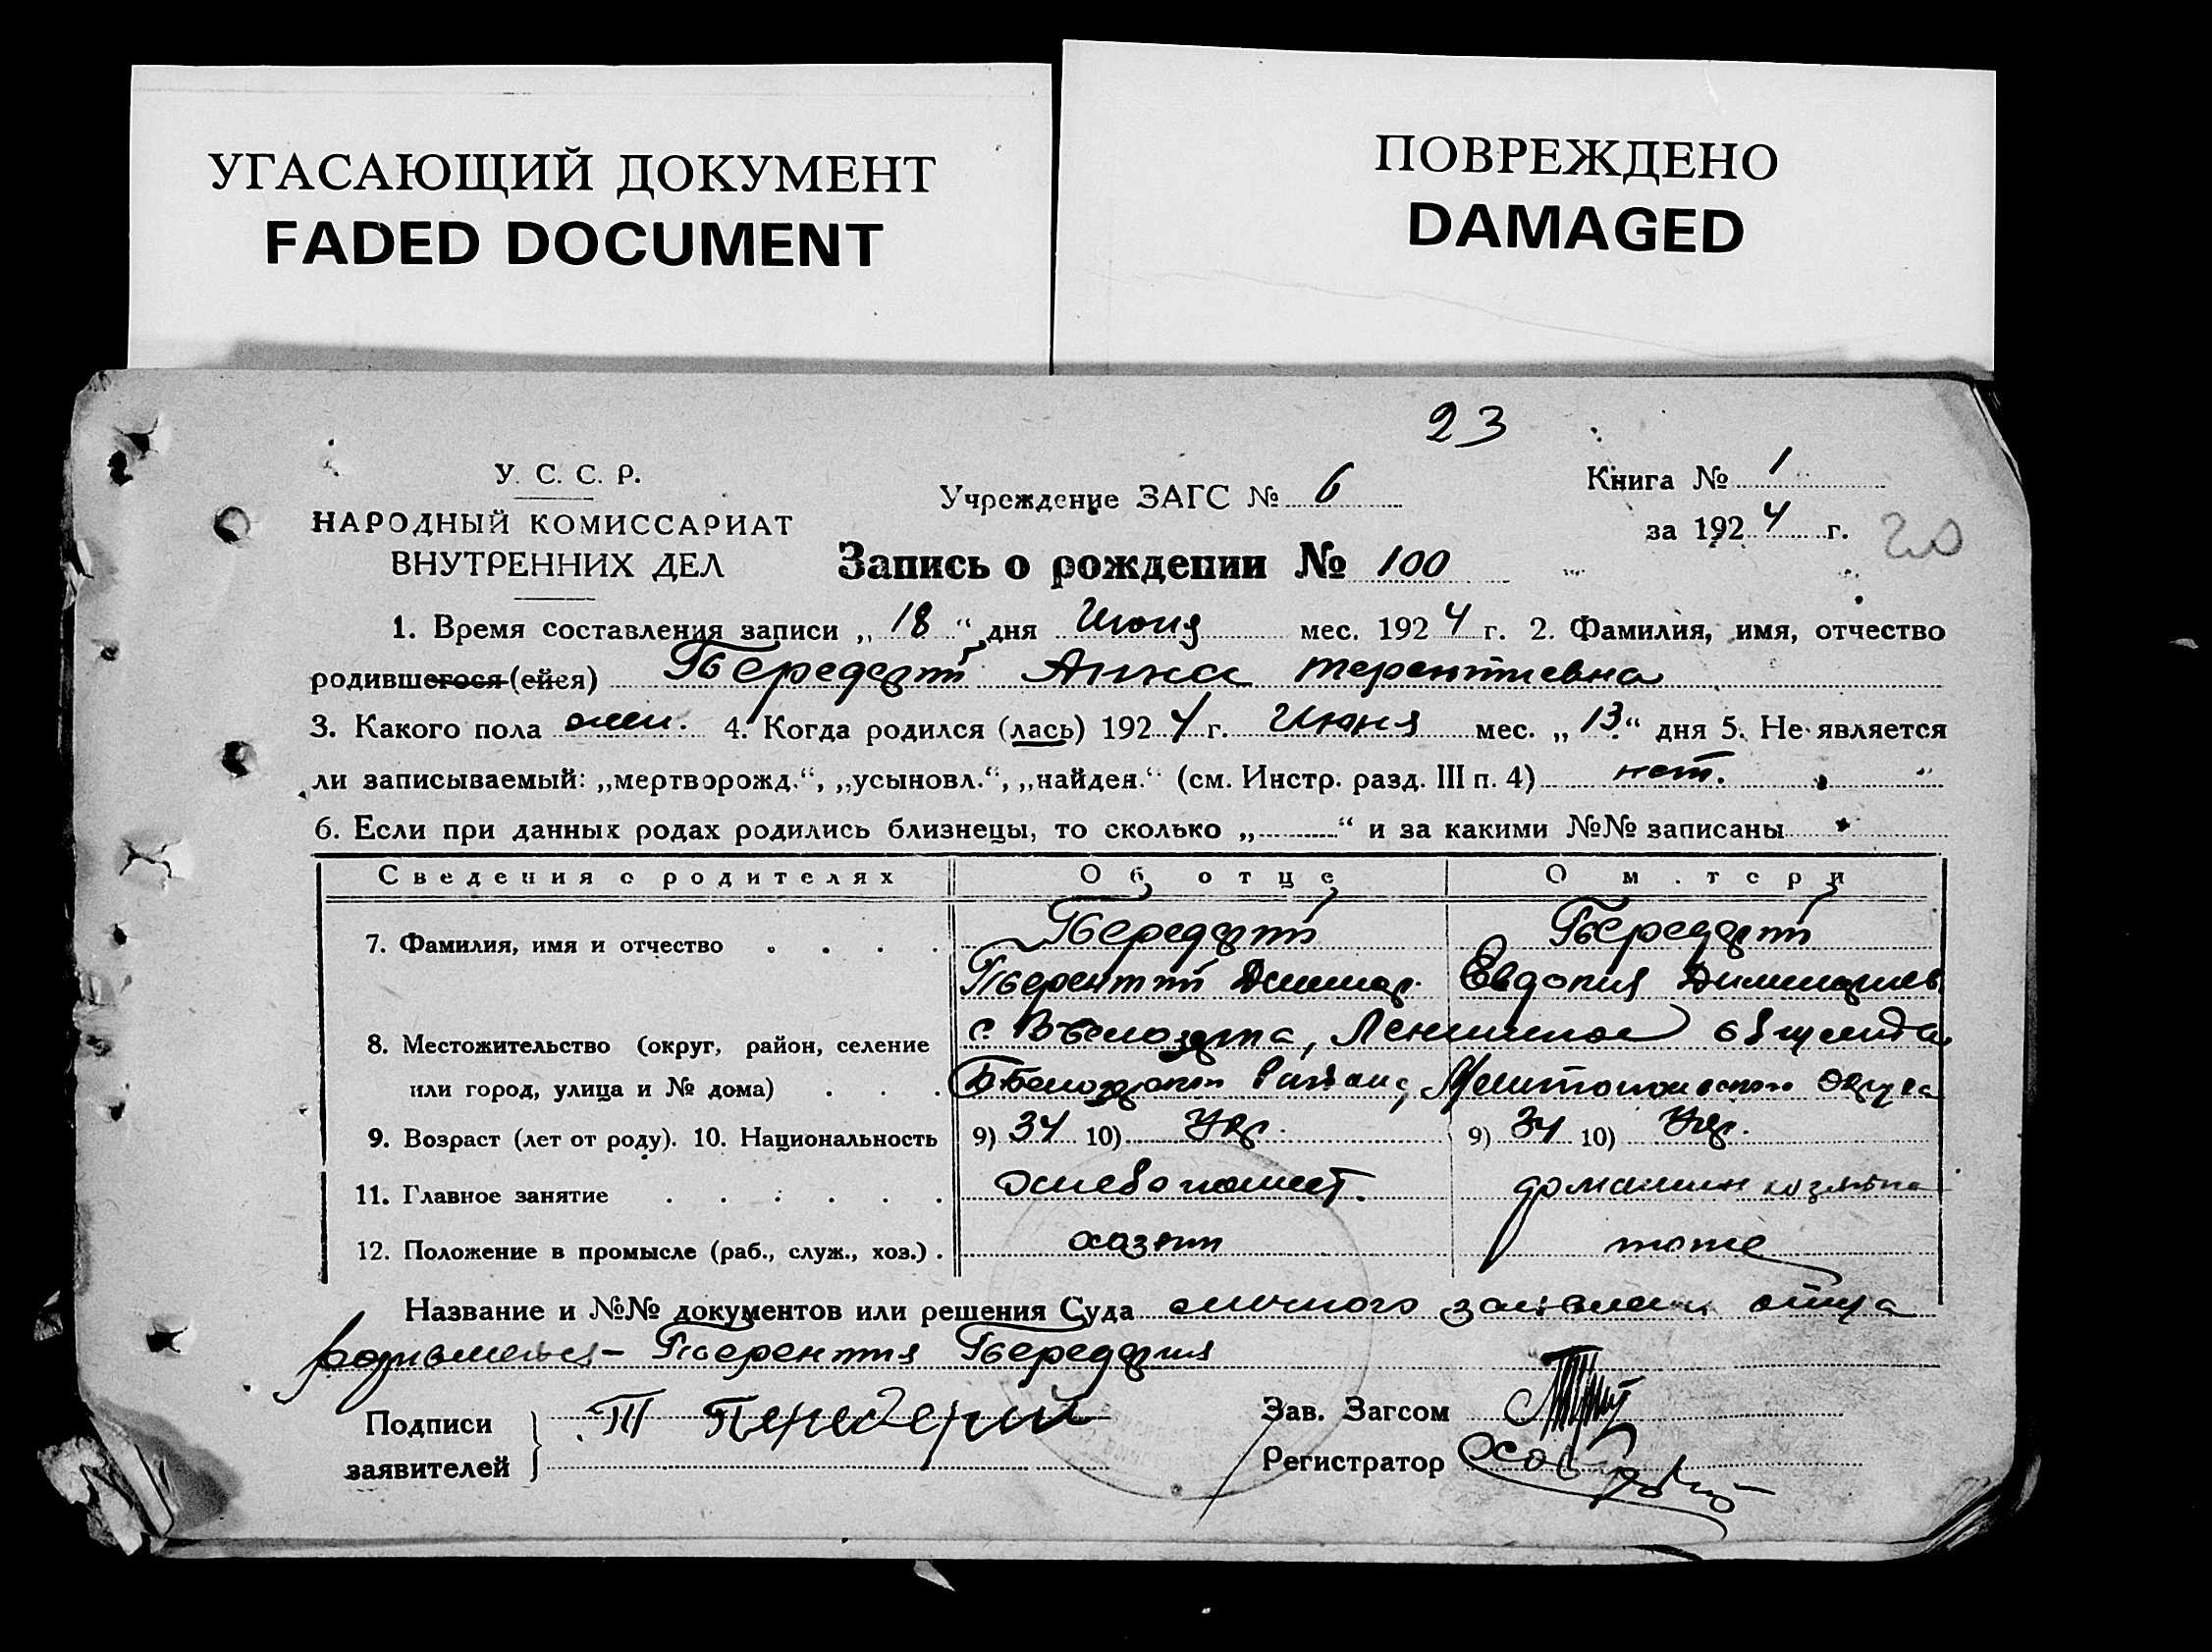 УГАСАЮЩИЙ ДОКУМЕНТ
FADED DOCUMENT
ПОВРЕЖДЕНО
DAMAGED
23
У. С. С. Р.
НАРОДНЫЙ КОМИССАРИАТ
ВНУТРЕННИХ ДЕЛ
Учреждение ЗАГС № 6
Книга № 1
за 1924 г. 20
Запись о рождении № 100
1. Время составления записи „18“ дня Июня мес. 1924 г. 2. Фамилия, имя, отчество
родившегося (ейся) Анна Терентиевна
3. Какого пола жен. 4. Когда родился (лась) 1924 г. Июня мес. „13“ дня 5. Не является
ли записываемый: „мертворожд.“, „усыновл.“, „найден.“ (см. Инстр. разд. III п. 4) нет.
6. Если при данных родах родились близнецы, то сколько „ “ и за какими №№ записаны
Сведения о родителях Об отце О матери
7. Фамилия, имя и отчество
Терентий Евдокия
8. Местожительство (округ, район, селение
или город, улица и № дома) Района, Мелитопольского Округа
9. Возраст (лет от роду). 10. Национальность 9) 34 10) Укр. 9) 34 10) Укр.
11. Главное занятие хлебопашест. домашн хозяйка
12. Положение в промысле (раб., служ., хоз.) хозяин тоже
Название и №№ документов или решения Суда личного заявлен. отца
родившейся – Терентия
Подписи
заявителей
Зав. Загсом
Регистратор